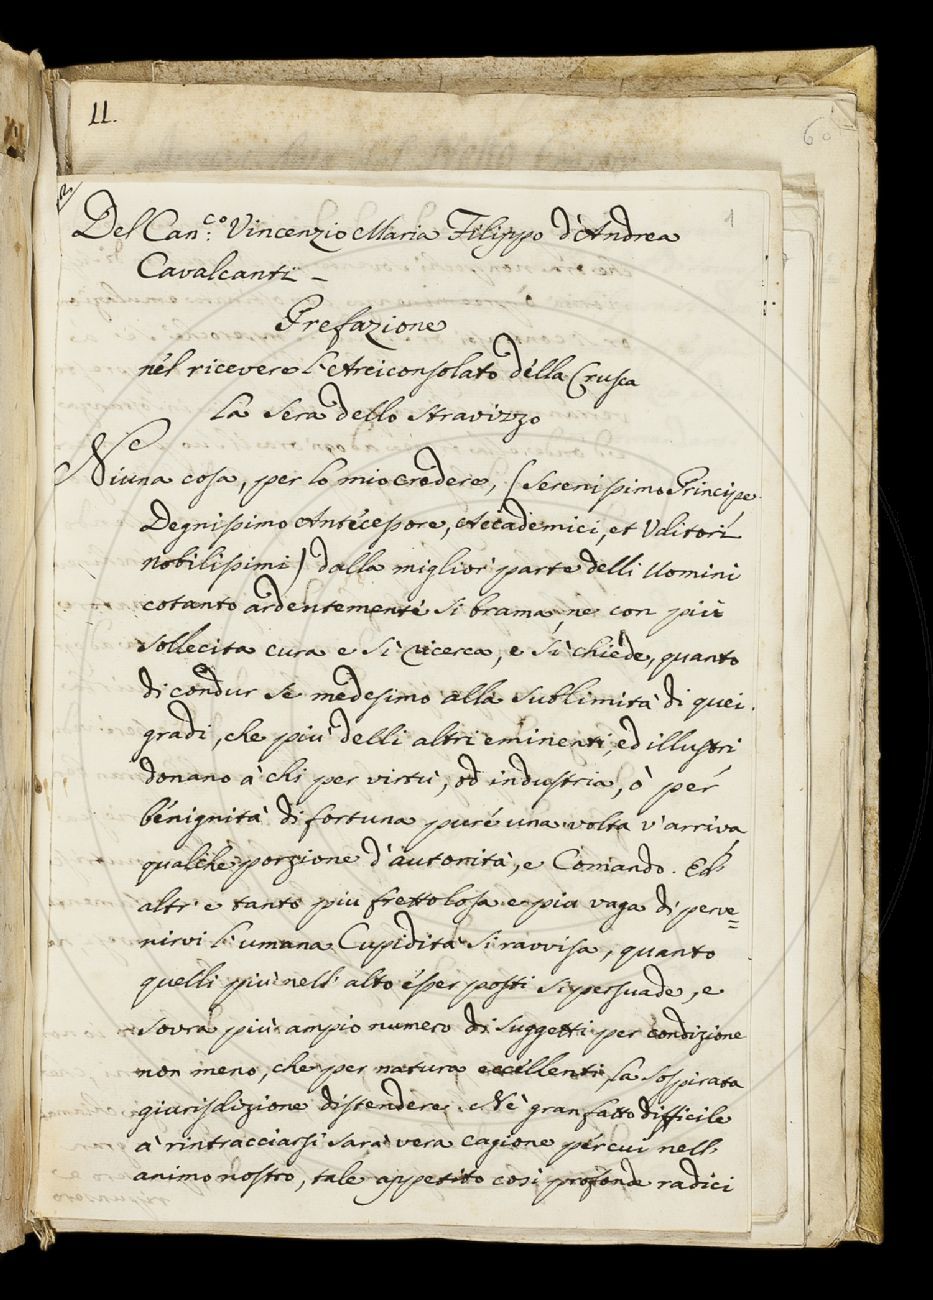 11.
60
12
1
Del Can.co Vincenzio Maria Filippo d'Andrea
Cavalcanti –
Prefazione
nel ricevere l'Arciconsolato della Crusca
La Sera dello Stravizzo
Niuna cosa, per lo mio credere, (Serenissimo Principe
Degnissimo Antecessore, Accademici, et Uditori
nobilissimi) dalla miglior parte delli Uomini
cotanto ardentemente si brama, ne con più
sollecita cura e si ricerca, e si chiede, quanto
di condur se medesimo alla sublimità di quei
gradi, che più delli altri eminenti, ed illustri
donano à chi per virtù, od industria, ò per
benignità di fortuna pure una volta v'arriva
qualche porzione d'autorità, e Comando. Ed
altr e tanto più frettolosa e più vaga di perve=
nirvi l'umana Cupidità si ravvisa, quanto
quelli più nell' alto esser posti si persuade, e
sovra più ampio numero di suggetti per condizione
non meno, che per natura eccellenti la sospirata
giurisdizione distendere. Nè gran fatto difficile
à rintracciarsi sarà vera cagione per cui nell'
animo nostro, tale appetito così profonde radici